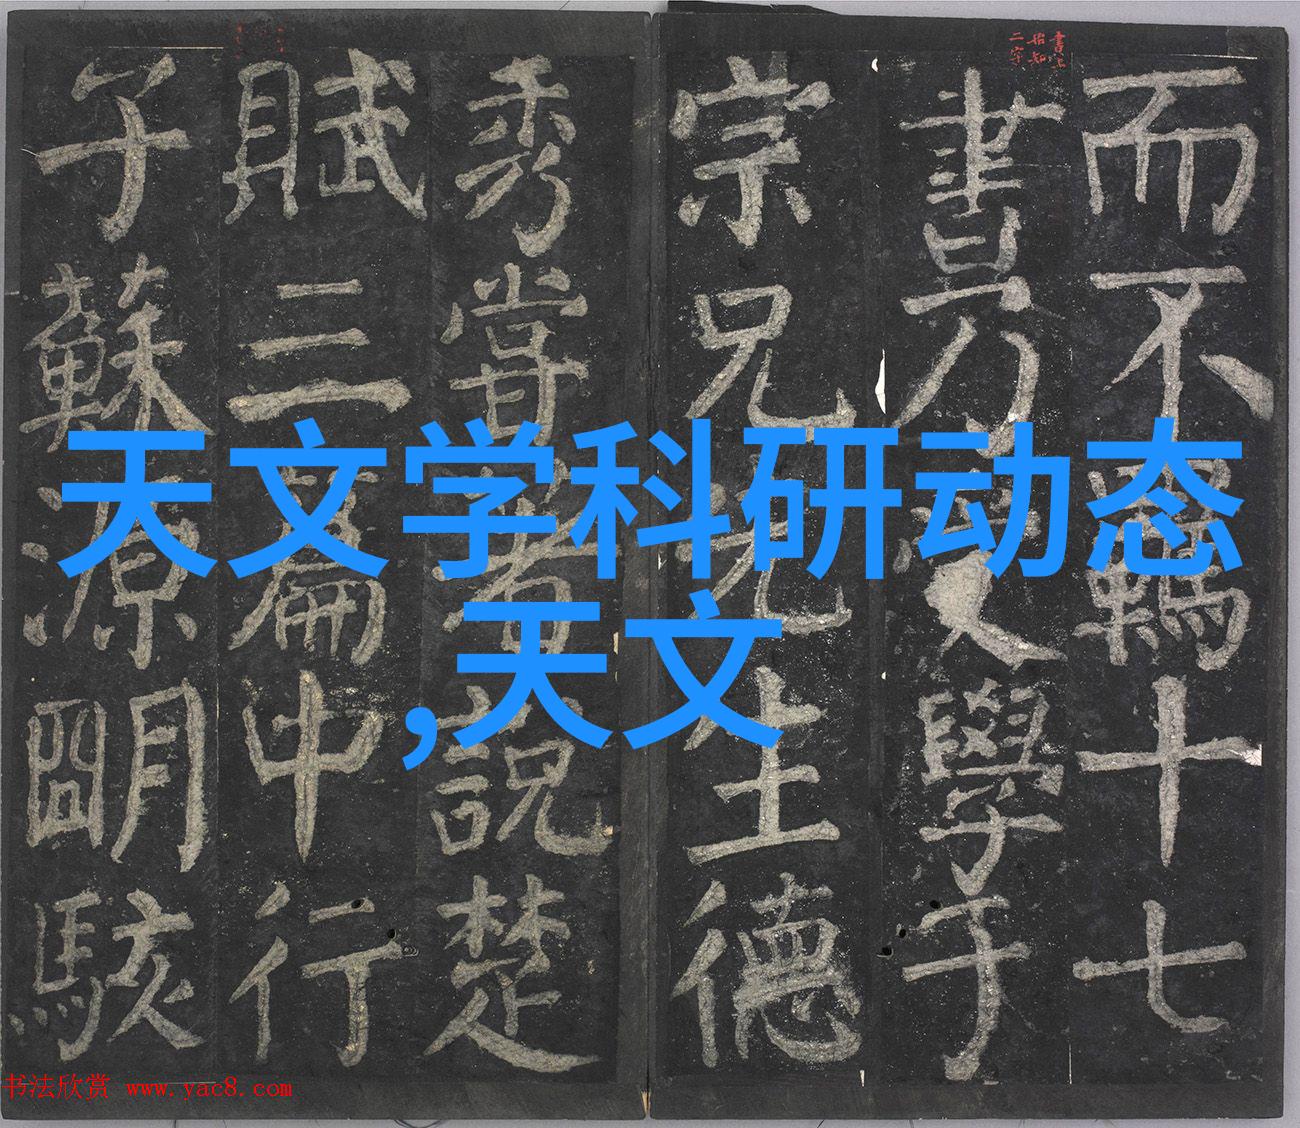 天文学科研动态
,天文
而不羈十七
書乃學于
宗兄先生德
秀嘗著說楚
賦三篇中行
子蘇源明駭
書上
始知
二字
书法欣赏 www.yac8.com